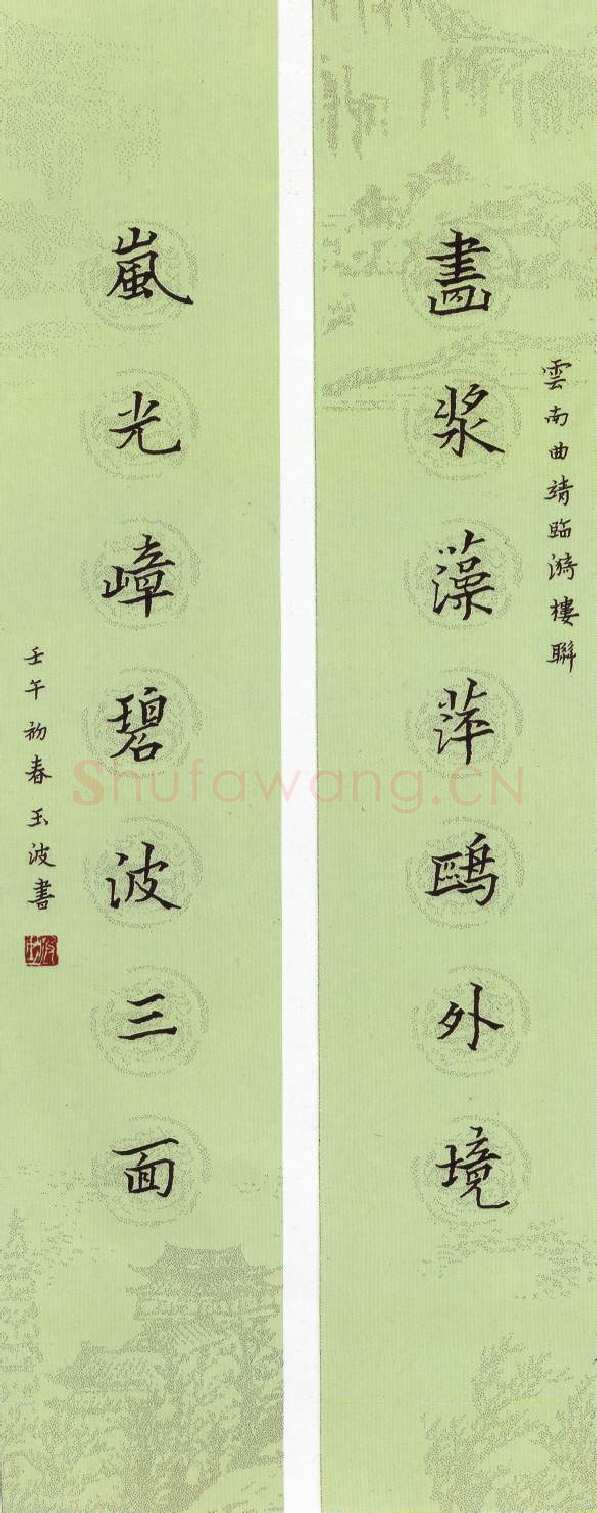 雲南曲靖臨漪樓聯
畫浆藻萍鷗外境
嵐光嶂碧波三面
壬午初春玉波書
Shufawang.CN